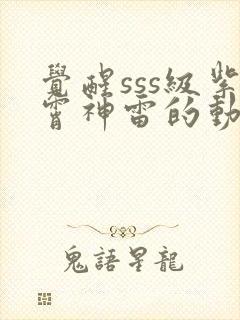 覺醒sss級紫
霄神雷的動
鬼語星龍